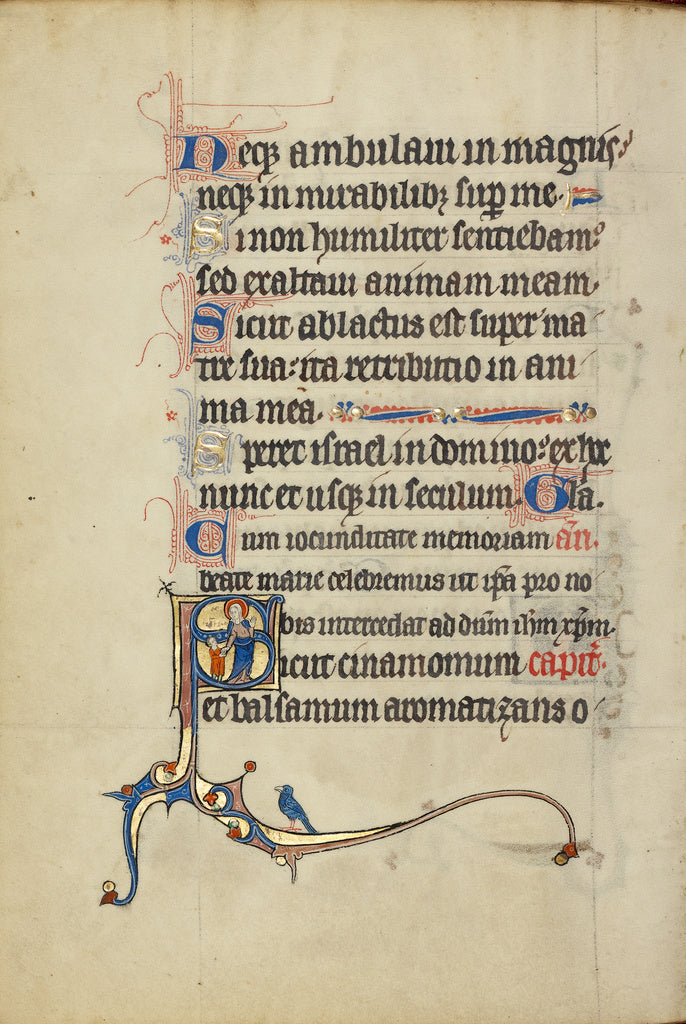 Neqꝫ ambulaui in magnis
neqꝫ in mirabilibꝫ suꝑ me.
Si non humiliter sentiebam:
sed exaltaui animam meam.
Sicut ablactus est super ma
tre sua: ita retributio in ani
ma mea.
Speret israel in domino: ex hoc
nunc et usqꝫ in seculum. Gl̄a.
Cum iocunditate memoriam an̄.
beate marie celebremus ut ip̄a pro no
bis intercedat ad dn̄m ih̄m xp̄m.
Sicut cinamomum capit̄.
et balsamum aromatizans o